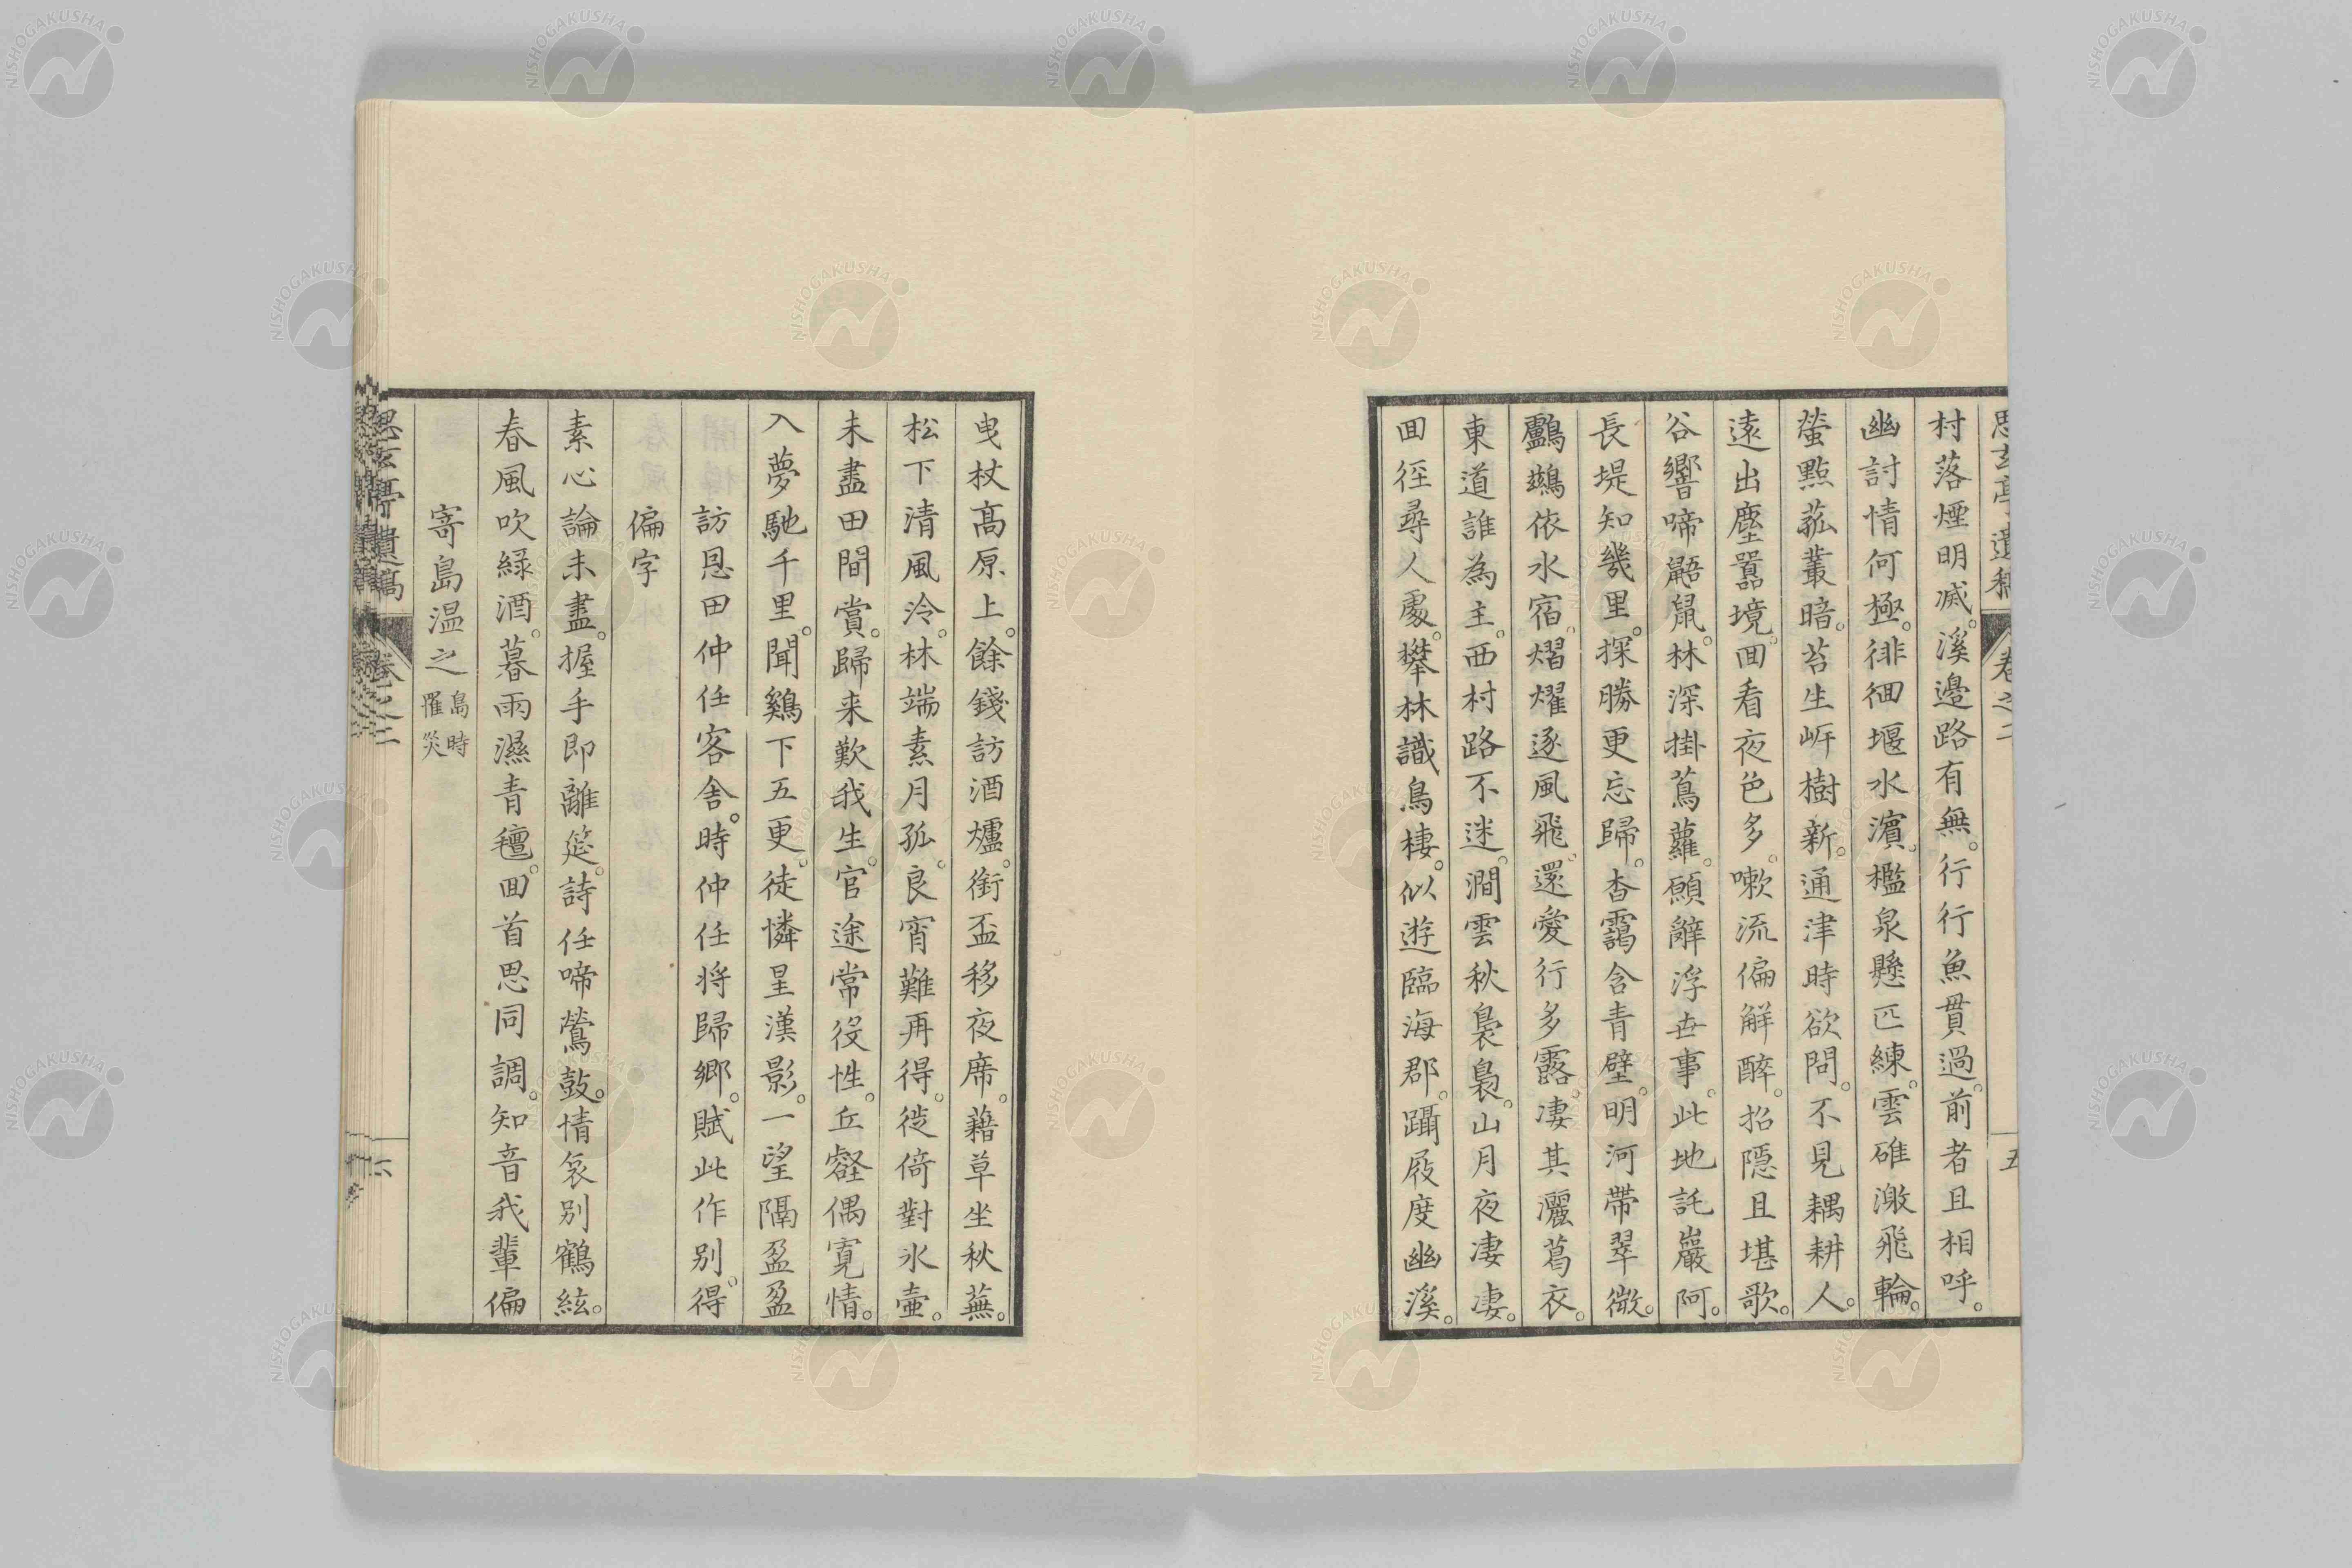 思玄亭遺稿 卷之二 五
村落煙明滅。溪邊路有無。行行魚貫過。前者且相呼。
幽討情何極。徘徊堰水濵。檻泉懸匹練。雲碓激飛輪。
螢點菰叢暗。苔生㟁樹新。通津時欲問。不見耦耕人。
遠出塵囂境。囬看夜色多。嗽流偏解醉。招隱且堪歌。
谷響啼鼯鼠。林深掛蔦蘿。願辭浮世事。此地託巖阿。
長堤知幾里。探勝更忘歸。杳靄含青壁。明河帶翠微。
鸕鷀依水宿。熠燿逐風飛。還愛行多露。凄其灑葛衣。
東道誰為主。西村路不迷。澗雲秋裊裊。山月夜凄凄。
囬徑尋人處。攀林識鳥棲。似遊臨海郡。躡屐度幽溪。
曳杖高原上。餘錢訪酒爐。銜盃移夜席。藉草坐秋蕪。
松下清風冷。林端素月孤。良宵難再得。徙倚對氷壷。
未盡田間賞。歸来歎我生。官途常役性。丘壑偶寬情。
入夢馳千里。聞鷄下五更。徒憐星漢影。一望隔盈盈
訪恩田仲任客舎。時仲任将歸鄉。賦此作別。得
偏字
素心論未盡。握手即離筵。詩任啼鶯鼓。情哀別鶴絃。
春風吹綠酒。暮雨濕青氊。囬首思同調。知音我輩偏
寄島温之 島時罹災
思玄亭遺稿 卷之二 六
NISHOGAKUSHA